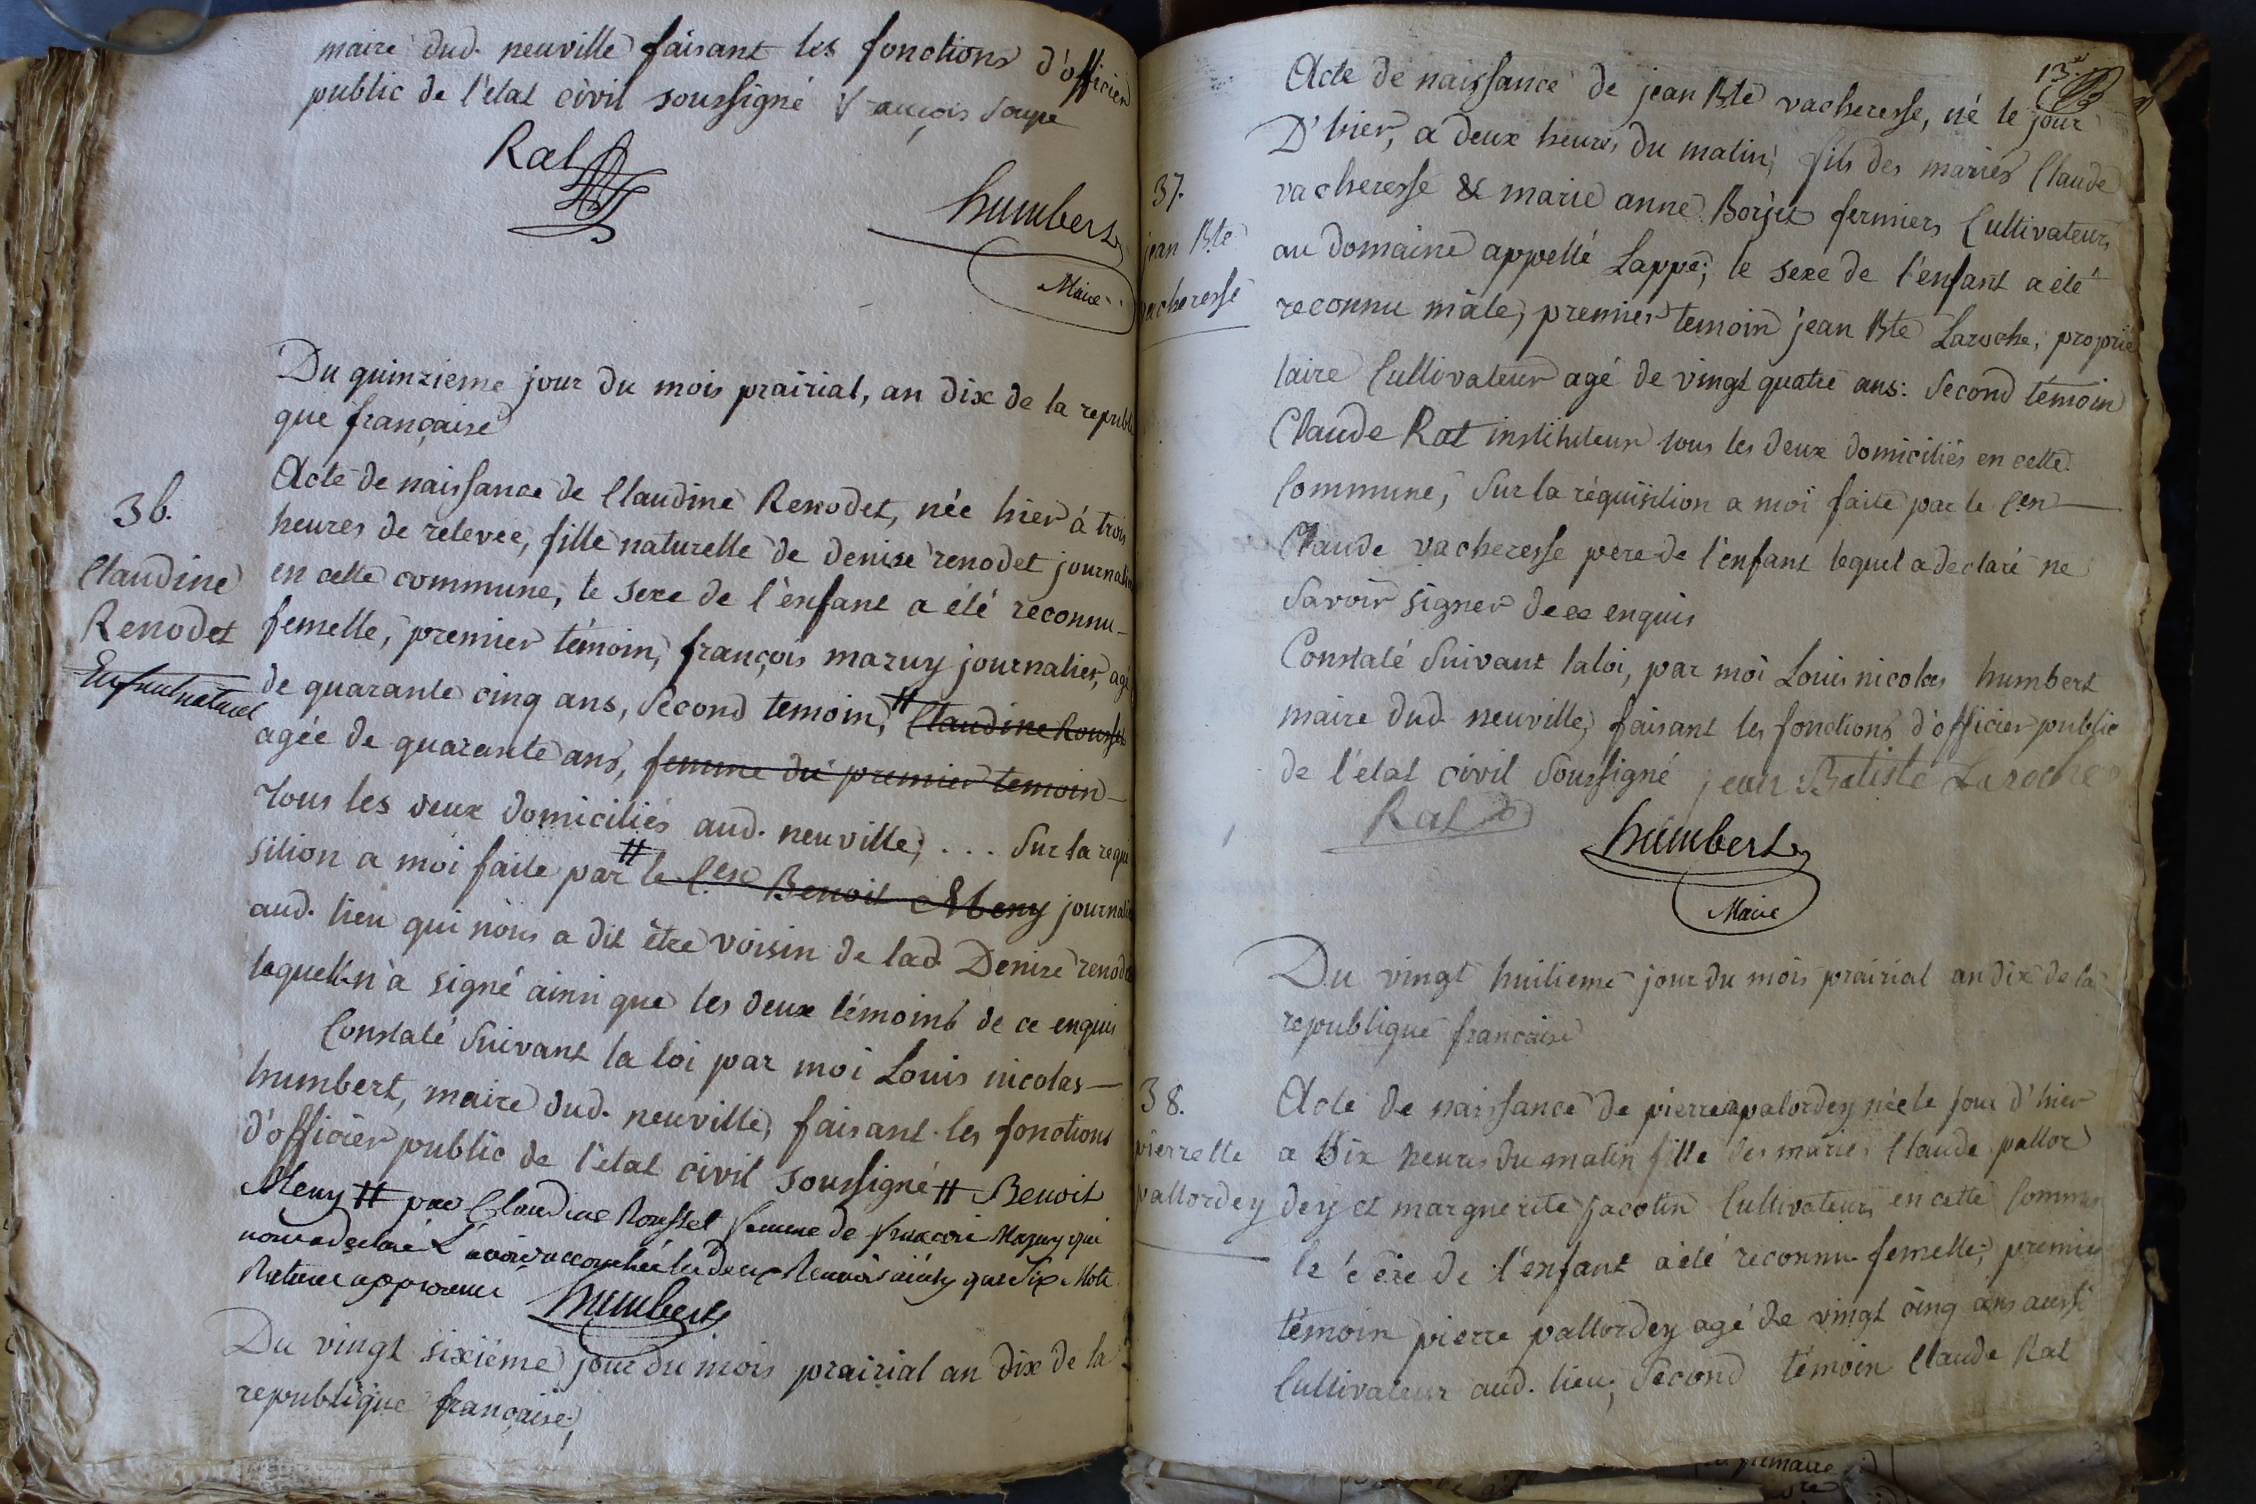 maire dud. neuville faisant les fonctions d'officier
public de l'état civil soussigné françois Soupe
Rat
humbert
Maire
Du quinzieme jour du mois prairial, an dix de la republi
que française
36.
Claudine
Renodet
Enfant naturel
Acte de naissance de Claudine Renodet, née hier à trois
heures de relevée, fille naturelle de denise renodet journali
en cette commune, le sexe de l'enfant a été reconnu
femelle, premier témoin, françois mazuy journalier, agé
de quarante cinq ans, Second temoin, # Claudine Roussel
agée de quarante ans, femme du premier temoin
tous les deux domiciliés aud. neuville, . . . Sur la requi
sition a moi faite par # le Cen Benoit Meny journali
aud. lieu qui nous a dit être voisin de lad. Denise renodet
lequel n'a signé ainsi que les deux témoins de ce enquis
Constaté Suivant la loi par moi Louis nicolas
humbert, maire dud. neuville, faisant les fonctions
d'officier public de l'état civil soussigné # Benoit
Meny # par Claudine Roussel femme de francois Mazuy qui
nous a declaré l'avoir accouchée lad. Renvois ainsy que six Mots
Rature approuvé
humbert
Du vingt sixième jour du mois prairial an dix de la
republique française,
13.
37.
jean Bte
vacheresse
Acte de naissance de jean Bte vacheresse, né le jour
D'hier, a deux heures du matin, fils des mariés Claude
vacheresse & marie anne Borjet fermiers Cultivateurs
au domaine appellé Lappe; le sexe de l'enfant a été
reconnu mâle, premier temoin jean Bte Laroche, proprie
taire Cultivateur agé de vingt quatre ans: Second témoin
Claude Rat instituteur tous les deux domiciliés en cette
Commune, Sur la réquisition a moi faite par le Cen
Claude vacheresse pere de l'enfant lequel a declaré ne
Savoir signer de ce enquis
Constaté Suivant la loi, par moi Louis nicolas humbert
maire dud. neuville, faisant les fonctions d'officier public
de l'état civil Soussigné jean Batiste Laroche
Rat
humbert
Maire
Du vingt huitieme jour du mois prairial an dix de la
republique française
38.
pierrette
pallordey
Acte de naissance de pierrette palordey née le jour d'hier
a Dix heures du matin fille des maries Claude pallor
dey et marguerite jacolin Cultivateurs en cette Commun
le sexe de l'enfant a été reconnu femelle, premier
témoin pierre pallordey agé de vingt cinq ans aussi
Cultivateur aud. lieu, Second témoin Claude Rat